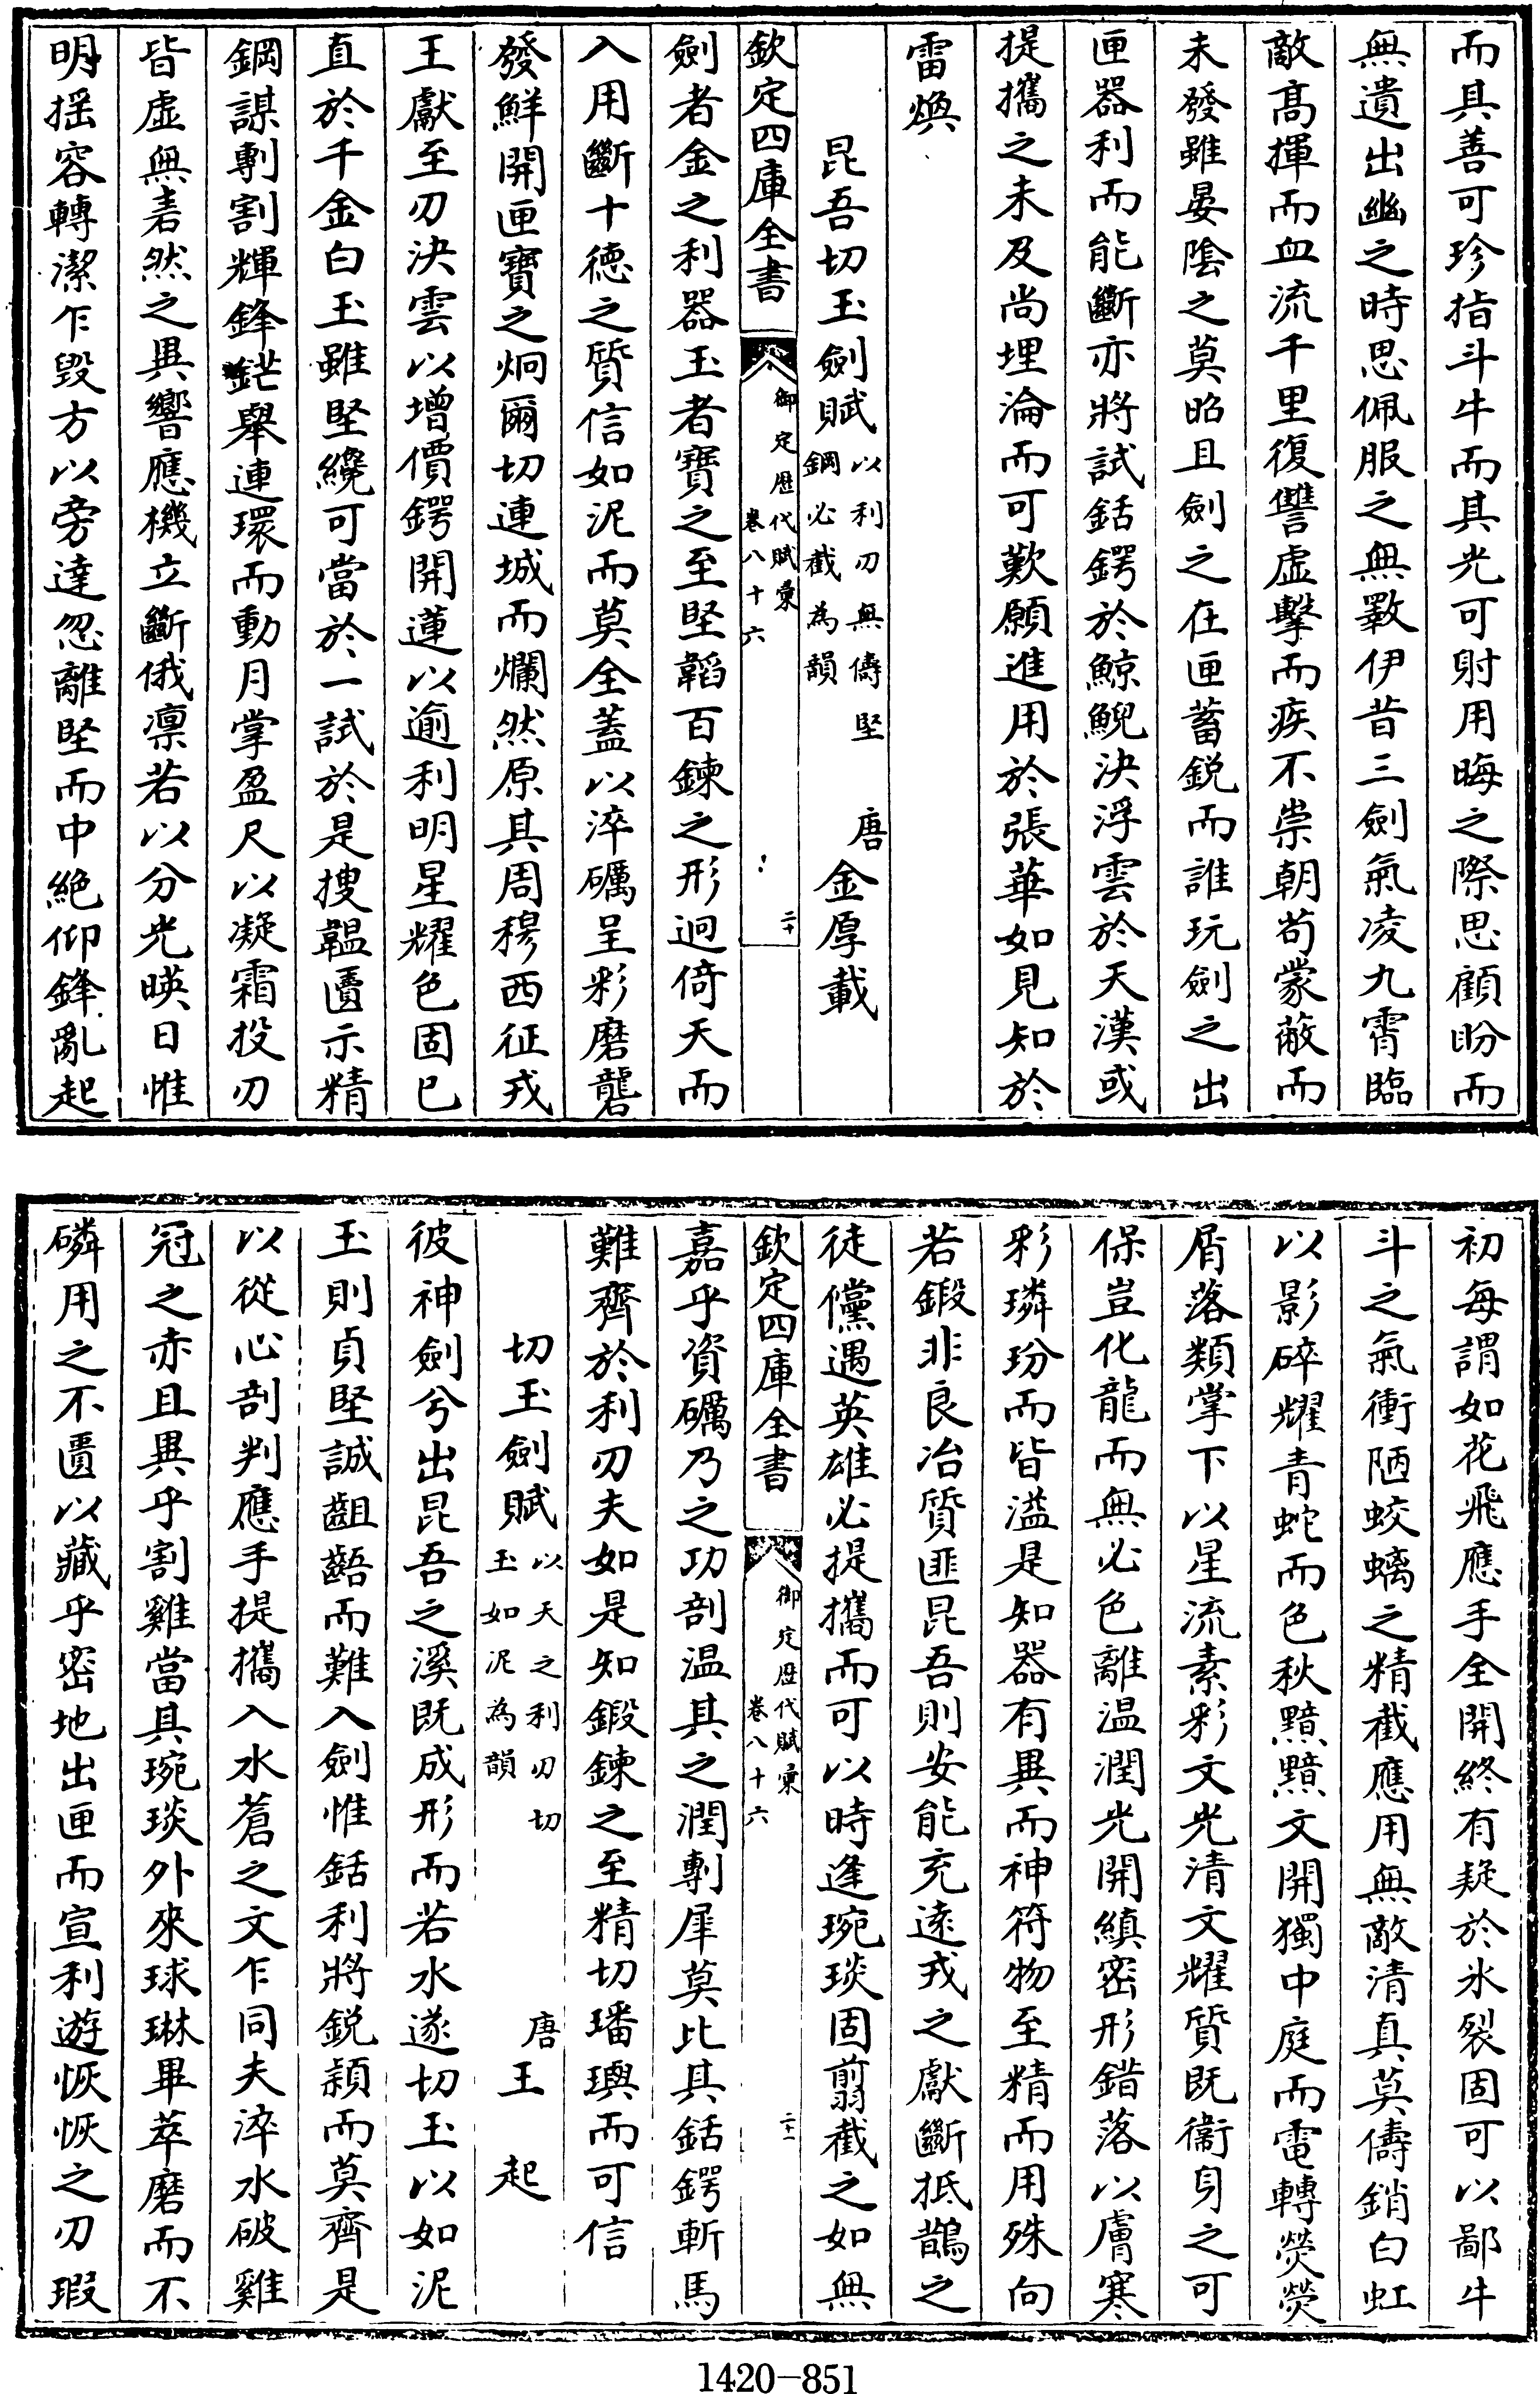 而具善可珍指斗牛而其光可射用晦之際思顧盼而
無遺出幽之時思佩服之無斁伊昔三劍氣凌九霄臨
敵高揮而血流千里復讐虚擊而疾不崇朝苟蒙蔽而
未發雖晏陰之莫昭且劍之在匣蓄鋭而誰玩劍之出
匣器利而能斷亦將試銛鍔於鯨鯢決浮雲於天漢或
提攜之未及尚埋淪而可歎願進用於張華如見知於
雷煥
昆吾切玉劍賦 以利刃無儔堅
鋼必截為韻 唐金厚載
欽定四庫全書 御定歴代賦彙
卷八十六 二十
劍者金之利器玉者寶之至堅韜百鍊之形迥倚天而
入用斷十德之質信如泥而莫全蓋以淬礪呈彩磨礲
發鮮開匣寶之炯爾切連城而爛然原其周穆西征戎
王獻至刃決雲以增價鍔開蓮以逾利明星耀色固已
直於千金白玉雖堅纔可當於一試於是搜韞匵示精
鋼謀剸割輝鋒鋩舉連環而動月掌盈尺以凝霜投刃
皆虚無砉然之異響應機立斷俄凛若以分光暎日惟
明摇容轉潔乍毁方以旁達忽離堅而中絶仰鋒亂起
初每謂如花飛應手全開終有疑於氷裂固可以鄙牛
斗之氣衝陋蛟螭之精截應用無敵清真莫儔銷白虹
以影碎耀青蛇而色秋黯黯文開獨中庭而電轉熒熒
屑落類掌下以星流素彩文光清文耀質既衞身之可
保豈化龍而無必色離温潤光開縝密形錯落以膚寒
彩璘玢而皆溢是知器有異而神符物至精而用殊向
若鍜非良冶質匪昆吾則安能充逺戎之獻斷抵鵲之
徒儻遇英雄必提攜而可以時逢琬琰固翦截之如無
欽定四庫全書 御定歴代賦彙
卷八十六 二十一
嘉乎資礪乃之功剖温其之潤剸犀莫比其銛鍔斬馬
難齊於利刃夫如是知鍜鍊之至精切璠璵而可信
切玉劍賦 以天之利刃切
玉如泥為韻 唐王起
彼神劍兮出昆吾之溪既成形而若水遂切玉以如泥
玉則貞堅誠齟齬而難入劍惟銛利將鋭穎而莫齊是
以從心剖判應手提攜入水蒼之文乍同夫淬水破雞
冠之赤且異乎割雞當其琬琰外來球琳畢萃磨而不
磷用之不匱以藏乎密地出匣而宣利遊恢恢之刃瑕
1420-851